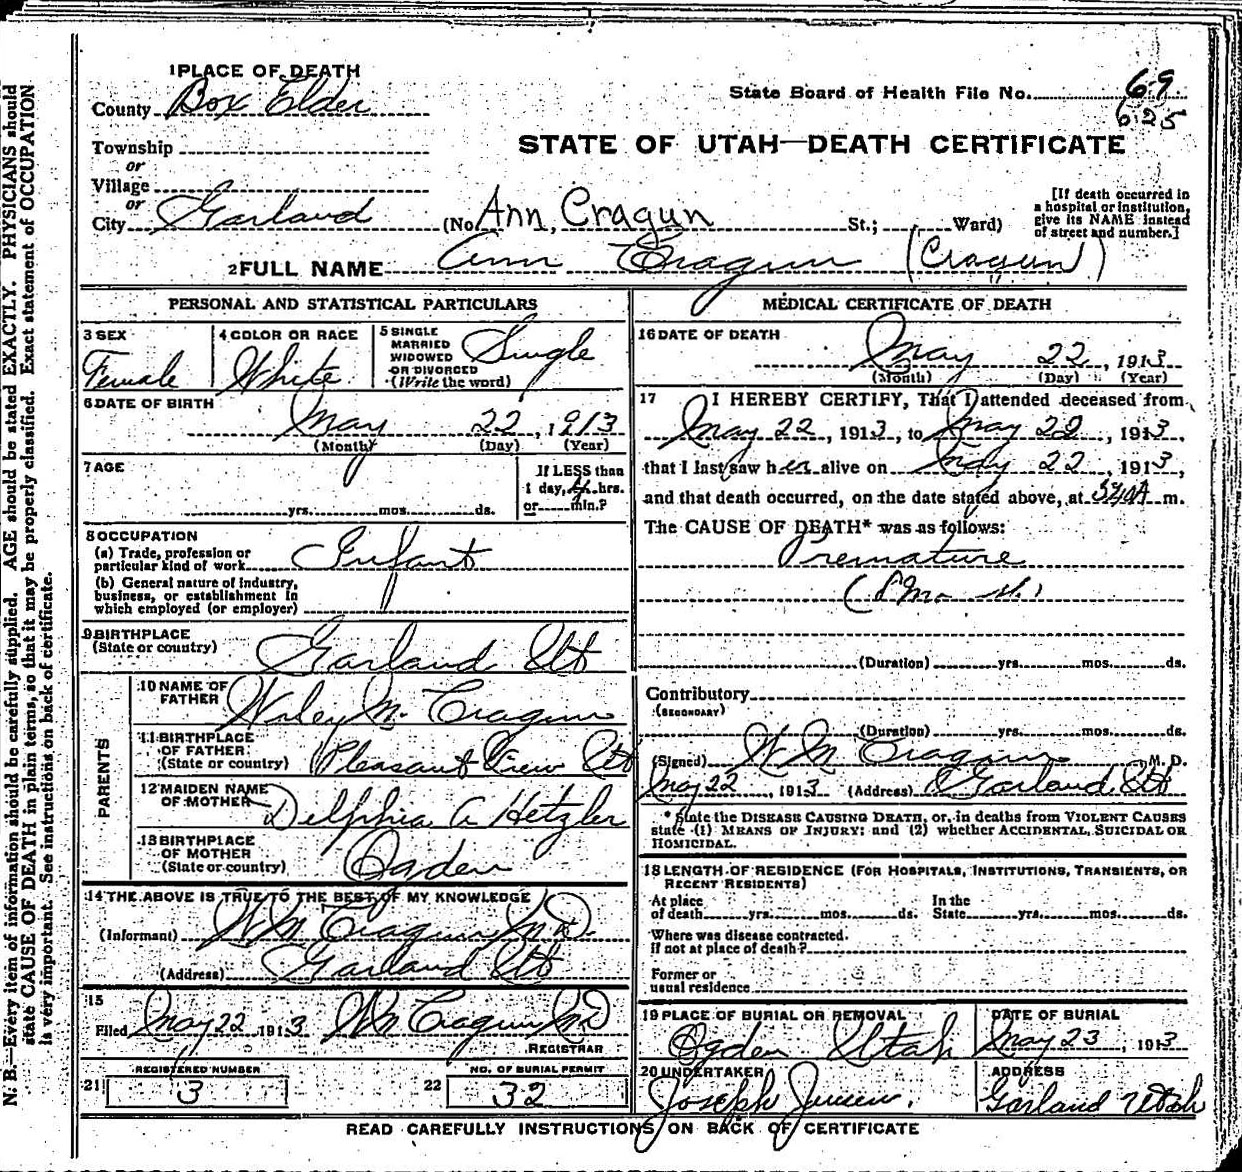 1 PLACE OF DEATH
County Box Elder
State Board of Health File No. 69
625
Township
or
STATE OF UTAH—DEATH CERTIFICATE
Village
or
City Garland (No. Ann, Cragun St.; Ward)
[If death occurred in
a hospital or institution,
give its NAME instead
of street and number.]
2 FULL NAME Ann Cragun (Cragun)
PERSONAL AND STATISTICAL PARTICULARS
3 SEX
Female
4 COLOR OR RACE
White
5 SINGLE
MARRIED
WIDOWED
OR DIVORCED
(Write the word)
Single
6 DATE OF BIRTH
May 22, 1913
(Month) (Day) (Year)
7 AGE
yrs. mos. ds.
If LESS than
1 day, 4 hrs.
or min.?
8 OCCUPATION
(a) Trade, profession or
particular kind of work Infant
(b) General nature of industry,
business, or establishment in
which employed (or employer)
9 BIRTHPLACE
(State or country) Garland Ut
PARENTS
10 NAME OF
FATHER Wiley M. Cragun
11 BIRTHPLACE
OF FATHER
(State or country) Pleasant View Ut
12 MAIDEN NAME
OF MOTHER Delphia A Hetzler
13 BIRTHPLACE
OF MOTHER
(State or country) Ogden
14 THE ABOVE IS TRUE TO THE BEST OF MY KNOWLEDGE
(Informant) W M Cragun M D.
(Address) Garland Ut
15
Filed May 22 1913 W M Cragun M D
REGISTRAR
REGISTERED NUMBER
21 3
NO. OF BURIAL PERMIT
22 32
MEDICAL CERTIFICATE OF DEATH
16 DATE OF DEATH
May 22, 1913
(Month) (Day) (Year)
17 I HEREBY CERTIFY, That I attended deceased from
May 22, 1913, to May 22, 1913,
that I last saw her alive on May 22, 1913,
and that death occurred, on the date stated above, at m.
The CAUSE OF DEATH* was as follows:
Premature
(Duration) yrs. mos. ds.
Contributory
(SECONDARY)
(Duration) yrs. mos. ds.
(Signed) W M Cragun M. D.
May 22, 1913 (Address) Garland Ut
*State the DISEASE CAUSING DEATH, or, in deaths from VIOLENT CAUSES
state (1) MEANS OF INJURY; and (2) whether ACCIDENTAL, SUICIDAL OR
HOMICIDAL.
18 LENGTH OF RESIDENCE (FOR HOSPITALS, INSTITUTIONS, TRANSIENTS, OR
RECENT RESIDENTS)
At place
of death yrs. mos. ds.
In the
State yrs. mos. ds.
Where was disease contracted.
if not at place of death?
Former or
usual residence
19 PLACE OF BURIAL OR REMOVAL
Ogden Utah
DATE OF BURIAL
May 23, 1913
20 UNDERTAKER
Joseph Jensen.
ADDRESS
Garland Utah
READ CAREFULLY INSTRUCTIONS ON BACK OF CERTIFICATE
N. B.—Every item of information should be carefully supplied. AGE should be stated EXACTLY. PHYSICIANS should
state CAUSE OF DEATH in plain terms, so that it may be properly classified. Exact statement of OCCUPATION
is very important. See instructions on back of certificate.